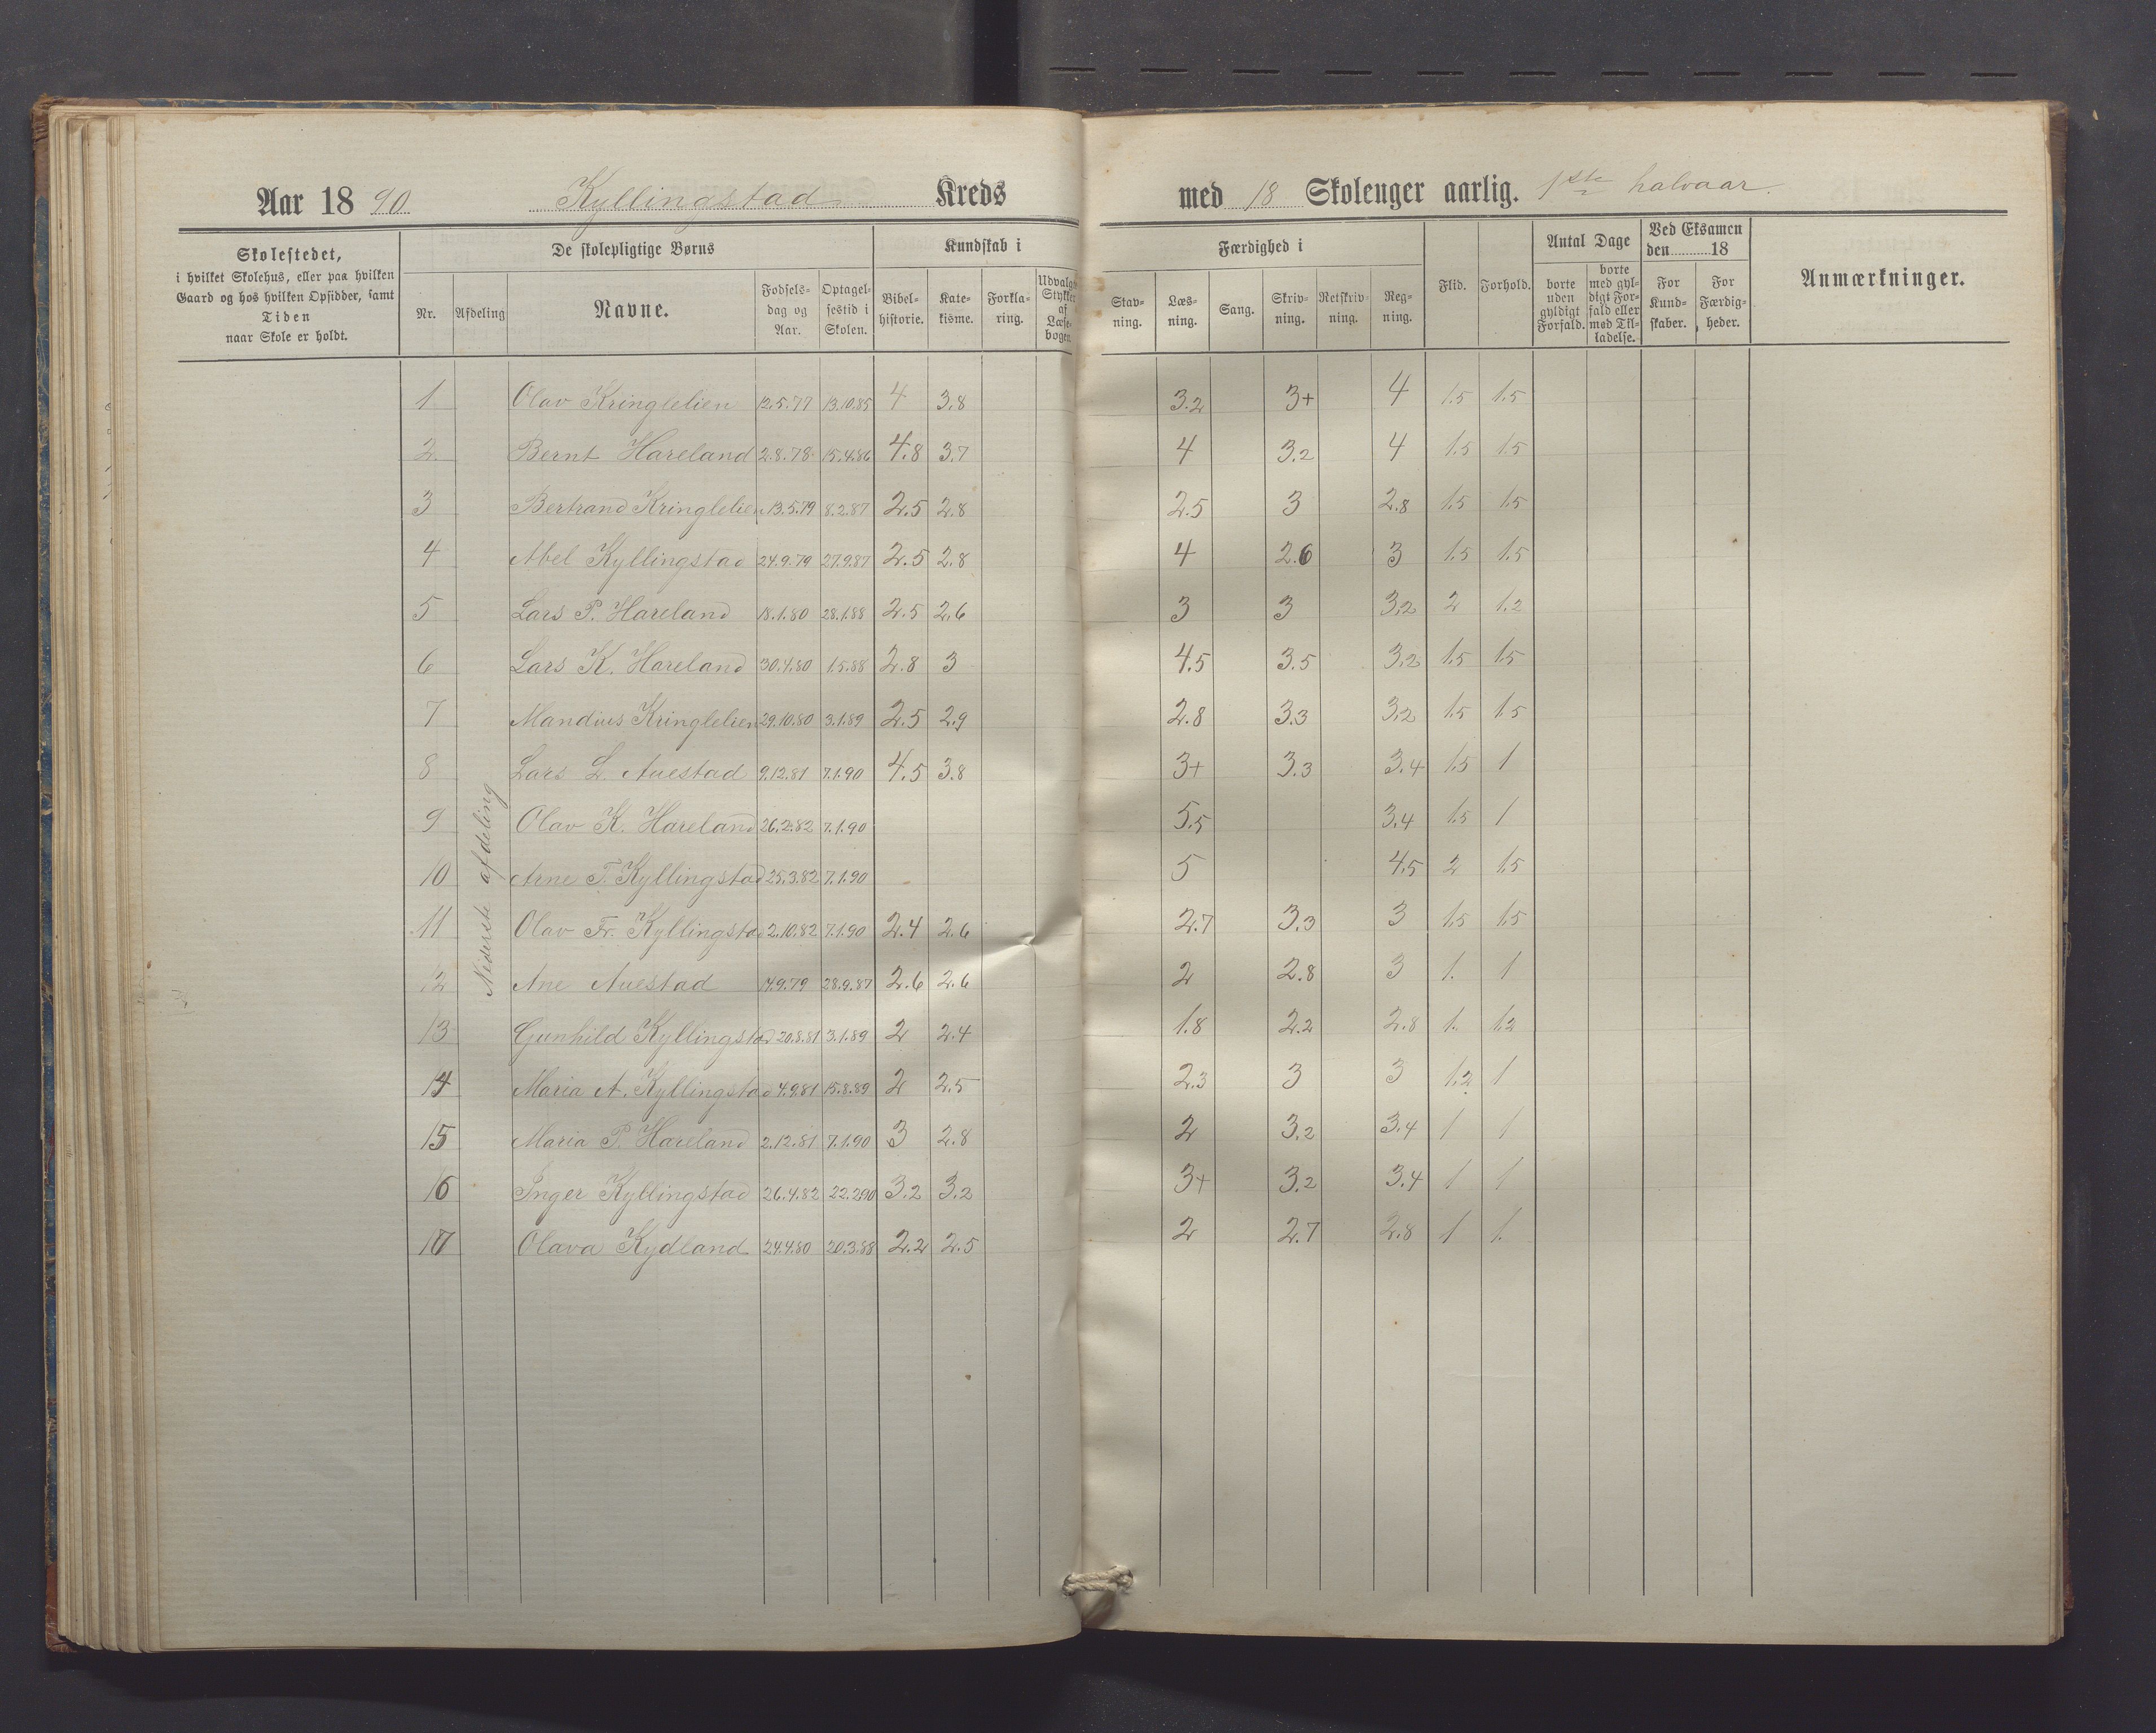 Aar 1890 Kyllingstad Kreds med 18 Skoleuger aarlig. 1ste halvaar.
Skolestedet,
i hvilket Skolehus, eller paa hvilken
Gaard og hos hvilken Opsidder, samt
Tiden
naar Skole er holdt.
De skolepligtige Børns
Nr.
Afdeling
Navne.
Fødsels-
dag og
Aar.
Optagel-
sestid i
Skolen.
Kundskab i
Bibel-
historie.
Kate-
kisme.
Forkla-
ring.
Udvalgte
Stykker
af
Læse-
bogen.
Færdighed i
Stav-
ning.
Læs-
ning.
Sang.
Skriv-
ning.
Retskriv-
ning.
Reg-
ning.
Flid.
Forhold.
Antal Dage
borte
uden
gyldigt
Forfald.
borte
med gyl-
digt For-
fald eller
med Til-
ladelse.
Ved Eksamen
den 18
For
Kund-
skaber.
For
Færdig-
heder.
Anmærkninger.
Nederste afdeling
1 Olav Kringlelien 12.5.77 13.10.85 4 3.8 3.2 3+ 4 1.5 1.5
2 Bernt Hareland 2.8.78 15.4.86 4.8 3.7 4 3.2 4 1.5 1.5
3 Bertrand Kringlelien 13.5.79 8.2.87 2.5 2.8 2.5 3 2.8 1.5 1.5
4 Abel Kyllingstad 24.9.79 27.9.87 2.5 2.8 4 2.6 3 1.5 1.5
5 Lars P. Hareland 18.1.80 28.1.88 2.5 2.6 3 3 3.2 2 1.2
6 Lars K. Hareland 30.4.80 1.5.88 2.8 3 4.5 3.5 3.2 1.5 1.5
7 Mandius Kringlelien 29.10.80 3.1.89 2.5 2.9 2.8 3.3 3.2 1.5 1.5
8 Lars L. Auestad 9.12.81 7.1.90 4.5 3.8 3+ 3.3 3.4 1.5 1
9 Olav K. Hareland 26.2.82 7.1.90 5.5 3.4 1.5 1
10 Arne T. Kyllingstad 25.3.82 7.1.90 5 4.5 2 1.5
11 Olav Fr. Kyllingstad 2.10.82 7.1.90 2.4 2.6 2.7 3.3 3 1.5 1.5
12 Ane Auestad 14.9.79 28.9.87 2.6 2.6 2 2.8 3 1. 1
13 Gunhild Kyllingstad 20.8.81 3.1.89 2 2.4 1.8 2.2 2.8 1. 1.2
14 Maria A. Kyllingstad 4.9.81 15.8.89 2 2.5 2.3 3 3 1.2 1
15 Maria P. Hareland 2.12.81 7.1.90 3 2.8 2 3.2 3.4 1 1
16 Inger Kyllingstad 26.4.82 22.2.90 3.2 3.2 3+ 3.2 3.4 1 1
17 Olava Kydland 24.4.80 20.3.88 2.2 2.5 2 2.7 2.8 1 1.